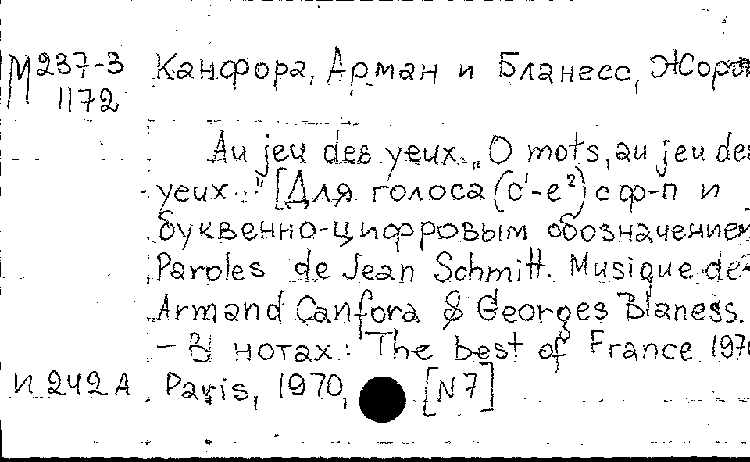 М237-3 Канфора, Арман и Бланесс, Жорж
1172
Au jeu des yeux. „O mots, au jeu des
yeux..." [Для голоса (c¹-e²) с ф-п и
буквенно-цифровым обозначением
Paroles de Jean Schmitt. Musique de
Armand Canfora & Georges Blaness.
- В нотах: The best of France 1970
И 242А Paris, 1970, [N7]